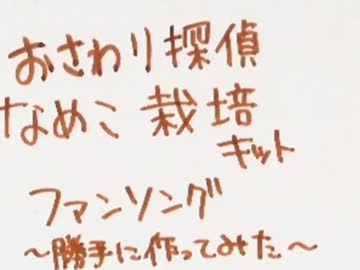 おさわり探偵
なめこ 栽培
キット
ファンソング
～勝手に作ってみた～